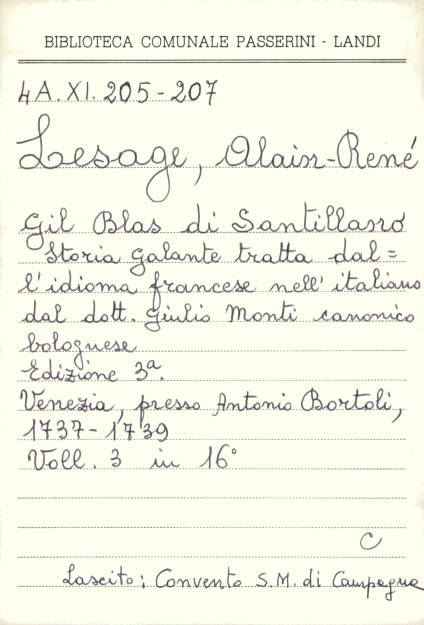 BIBLIOTECA COMUNALE PASSERINI - LANDI
4A. XI. 205-207
Lesage, Alain-René
Gil Blas di Santillano
Storia galante tratta dal=
l'idioma francese nell'italiano
dal dott. Giulio Monti canonico
bolognese
Edizione 3ª.
Venezia, presso Antonio Bortoli,
1737-1739
Voll. 3 in 16°
C
Lascito: Convento S.M. di Campagna